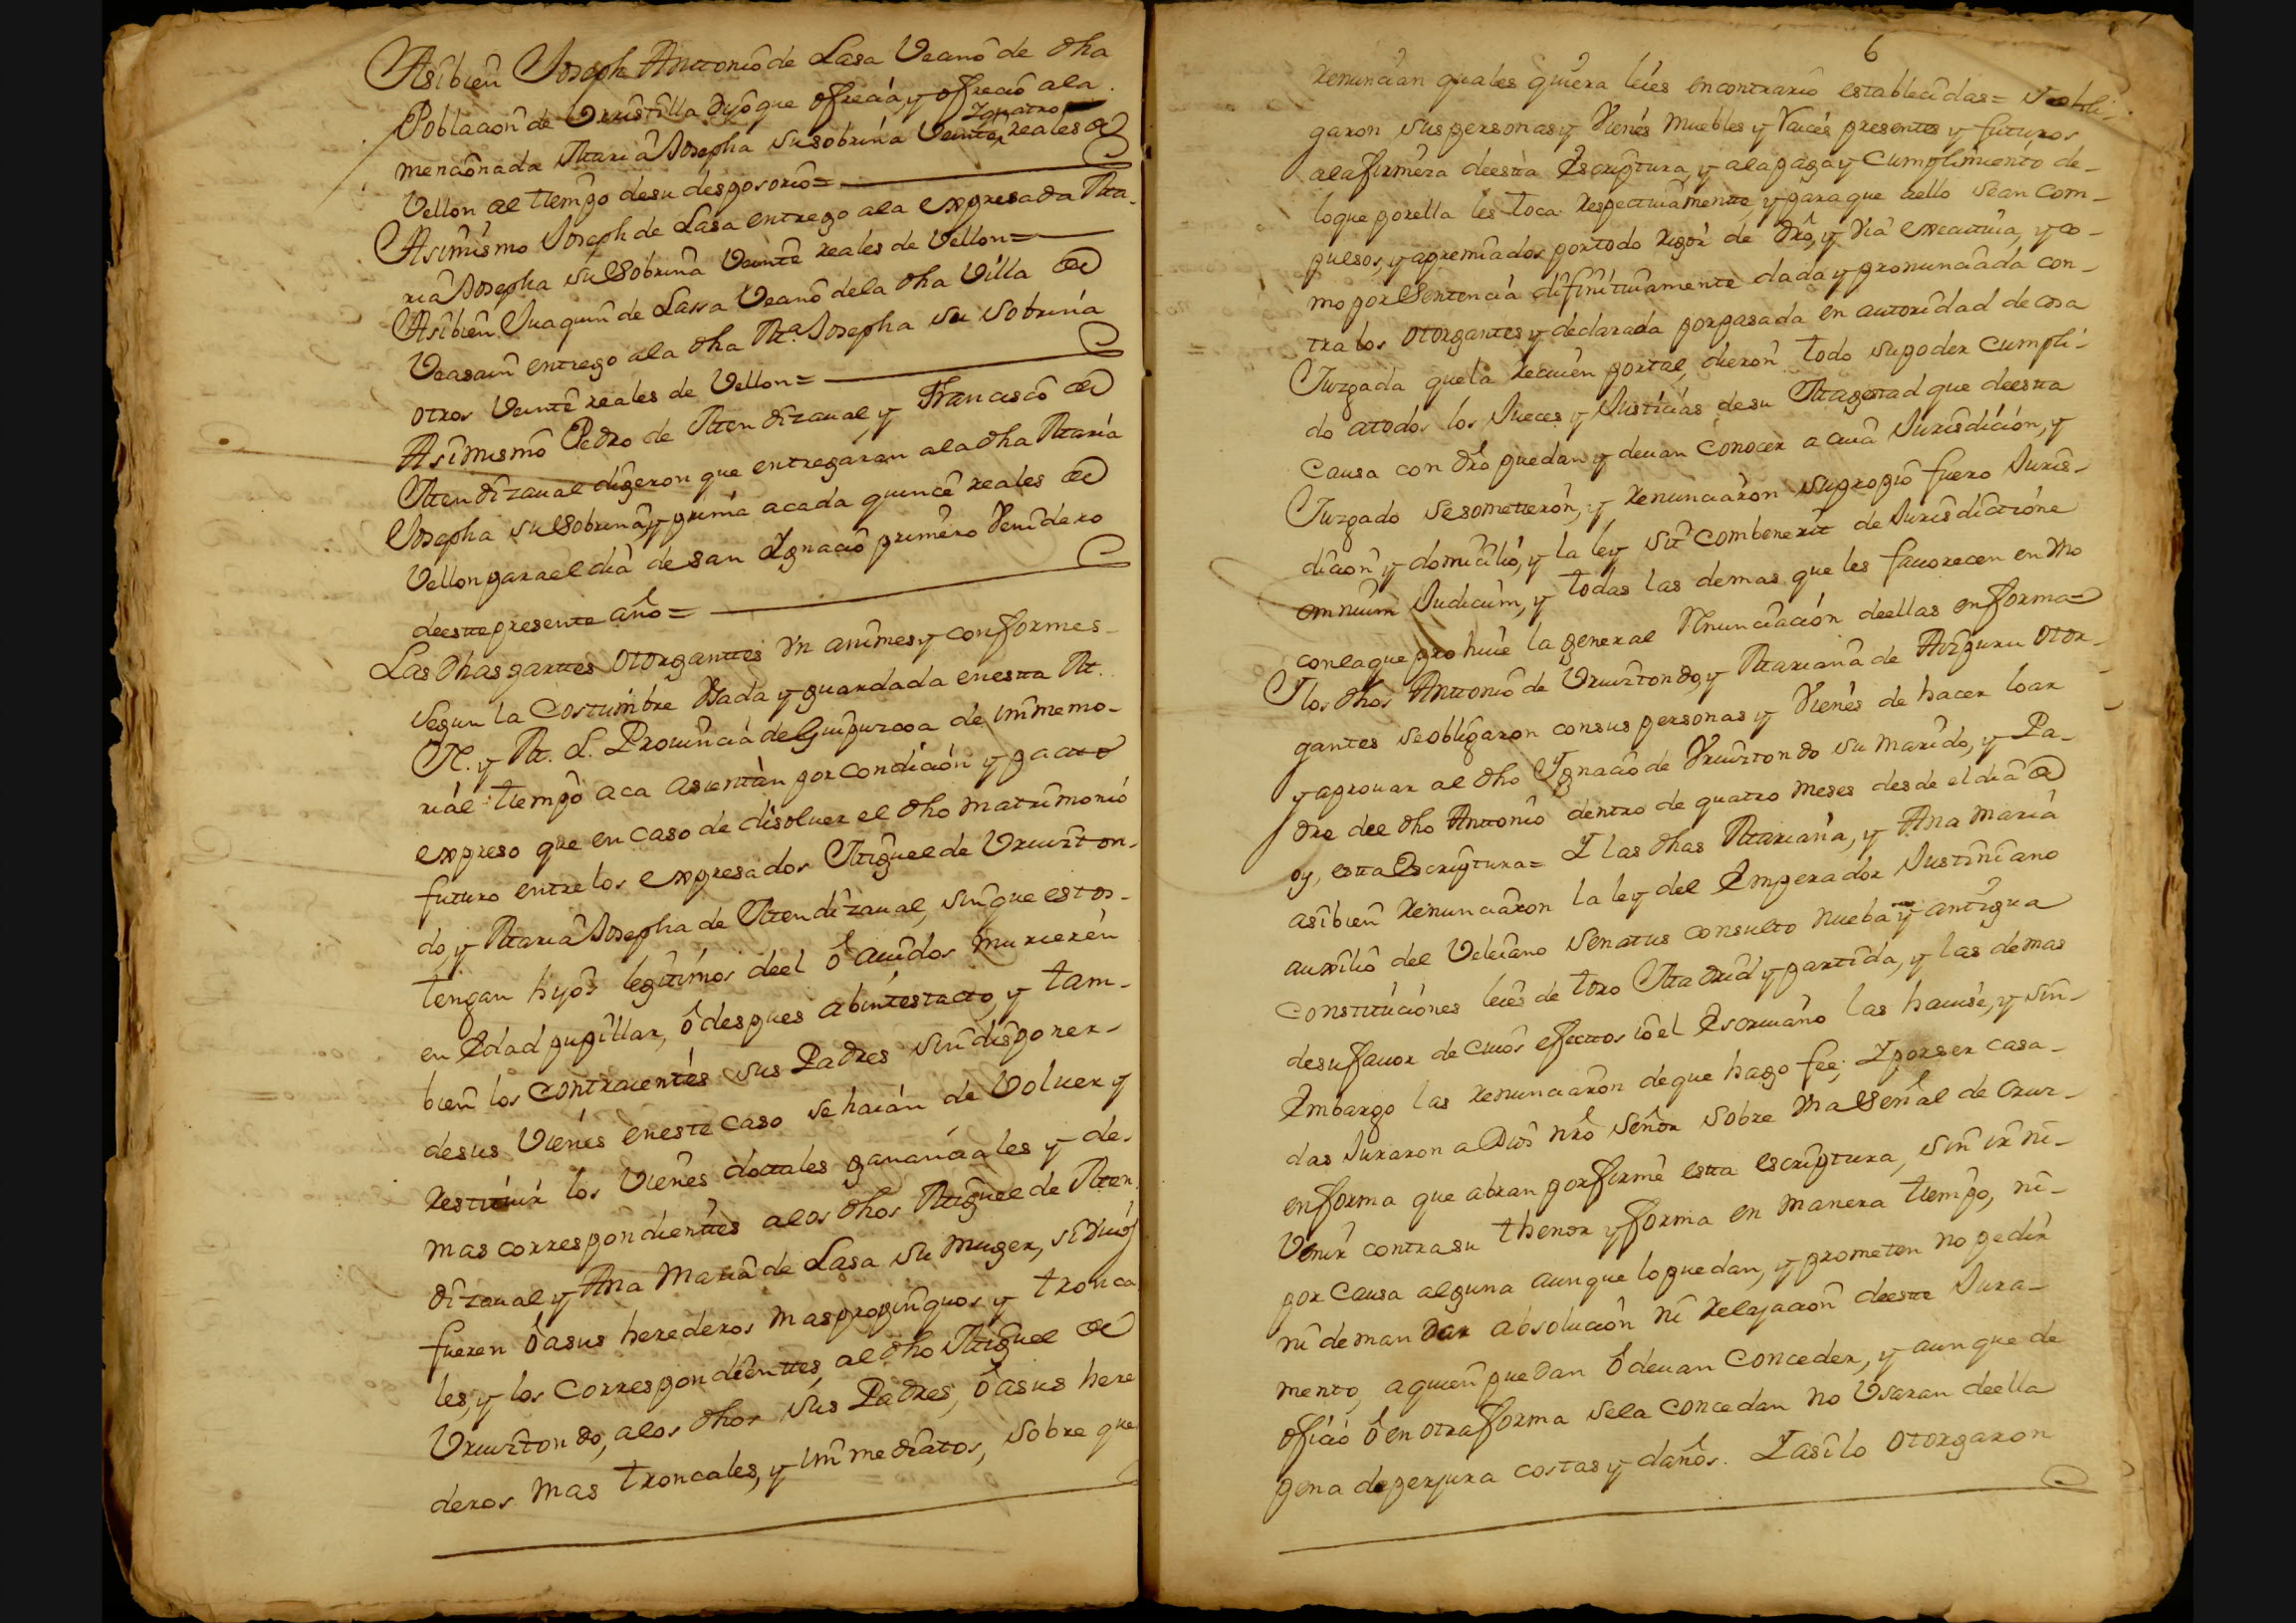 Asibien Joseph Anttonio de Lasa Vecino de dha
Poblacion de Urrestilla Dijo que ofrecia, y ofrecio ala
mencionada Maria Josepha su sobrina Veinte y quatro reales de
Vellon al tiempo desu desposorio=
Asimismo Joseph de Lasa entrego ala expresada Ma-
ria Josepha su Sobrina Veinte reales de Vellon=
Asibien Juaquin de Lassa Vecino dela dha Villa de
Veasain entrego ala dha Ma. Josepha su sobrina
otros Veinte reales de Vellon=
Asimismo Pedro de Mendizaual, y Francisco de
Mendizaual digeron que entregaran ala dha Maria
Josepha su Sobrina, y prima acada quince reales de
Vellon para el dia de san Ignacio primero Venidero
deestte presente año=
Las dhas parttes otorganttes Vnanimes y conformes
segun la Costumbre Vsada y guardada enestta M.
N. y M. L. Prouincia de Guipuzcoa de immemo-
rial tiempo aca asientan por condicion y pacto
expreso que en caso de disoluer el dho matrimonio
futuro entre los expresados Miguel de Vruiztton-
do, y Maria Josepha de Mendizaual, sin que estos
tengan hijos legitimos deel ô auidos murieren
en Edad pupillar, ô despues abintestatto, y tam-
bien los contraientes sus Padres sin disponer
desus Vienes eneste caso se haian de Voluer y
restituir los Vienes dottales gananciales y de-
mas correspondienttes alos dhos Miguel de Men-
dizaual y Ana Maria de Lasa su muger, si viuos
fueren ô asus herederos mas propinquos y tronca
les, y los correspondienttes, al dho Miguel de
Vruiztondo, alos dhos sus Padres, ô asus here
deros mas troncales, y immediatos, sobre que
6
renuncian quales quiera leies encontrario establecidas= y obli-
garon sus personas y Vienes muebles y raices presentes y futuros
ala firmeza deesta Escriptura, y ala paga y cumplimiento de
loque porella les toca respectiuamentte, y para que aello sean com-
pulsos, y apremiados portodo rigor de dro, y via executiua, y co-
mo por Sentencia difinitiuamente dada y pronunciada con-
tra los otorgantes y declarada por pasada en autoridad de cosa
Juzgada que la reciuen por tal, dieron todo su poder cumpli-
do atodos los Jueces y Justicias desu Magestad que deesta
Causa con dro puedan y deuan conocer a cuia Jurisdicion, y
Juzgado se sometieron, y renunciaron su propio fuero Juris-
dicion y domicilio, y la ley sit combenerit de Jurisdictione
omnium Judicum, y todas las demas que les fauorecen en vno
conlaque prohiue la general renunciacion deellas enforma=
Y los dhos Anttonio de Vruiztondo, y Mariana de Aizpuru otor-
gantes se obligaron consus personas y Vienes de hacer loar
y aprouar al dho Ignacio de Vruiztondo su marido, y Pa-
dre del dho Anttonio dentro de quatro meses desde el dia de
oy, esta Escriptura= Y las dhas Mariana, y Ana Maria
asibien renunciaron la ley del Emperador Justiniano
auxilio del Veleiano senatus consulto nueba y antigua
constituciones leies de toro Madrid y partida, y las demas
desu fauor de cuios efecttos io el Escriuano las hauise, y sin
Embargo las renunciaron de que hago fee; Y por ser casa-
das Juraron a Dios nro señor sobre Vna Señal de Cruz
enforma que abran por firme esta escriptura, sin ir ni
Venir contra su thenor y forma en manera tiempo, ni
por Causa alguna aunque lo puedan, y prometen no pedir
ni demandar absolucion ni relajacion deestte Jura-
mento, aquien puedan ô deuan Conceder, y aunque de
oficio ô en otra forma sela concedan no Vsaran deella
pena de perjura costas y daños. Y asi lo otorgaron